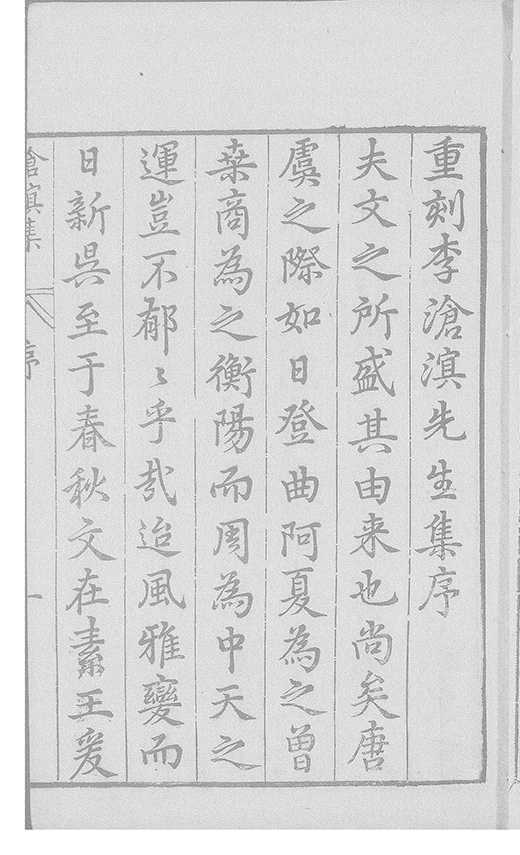 重刻李滄溟先生集序
夫文之所盛其由来也尚矣唐
虞之際如日登曲阿夏為之曾
桒商為之衡陽而周為中天之
運豈不郁〻乎哉迨風雅變而
日新吳至于春秋文在素王爰
滄溟集
序
一